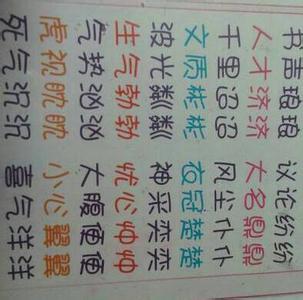 书声琅琅 议论纷纷
人才济济 大名鼎鼎
千里迢迢 风尘仆仆
文质彬彬 衣冠楚楚
波光粼粼 神采奕奕
生气勃勃 忧心忡忡
气势汹汹 大腹便便
虎视眈眈 小心翼翼
死气沉沉 喜气洋洋